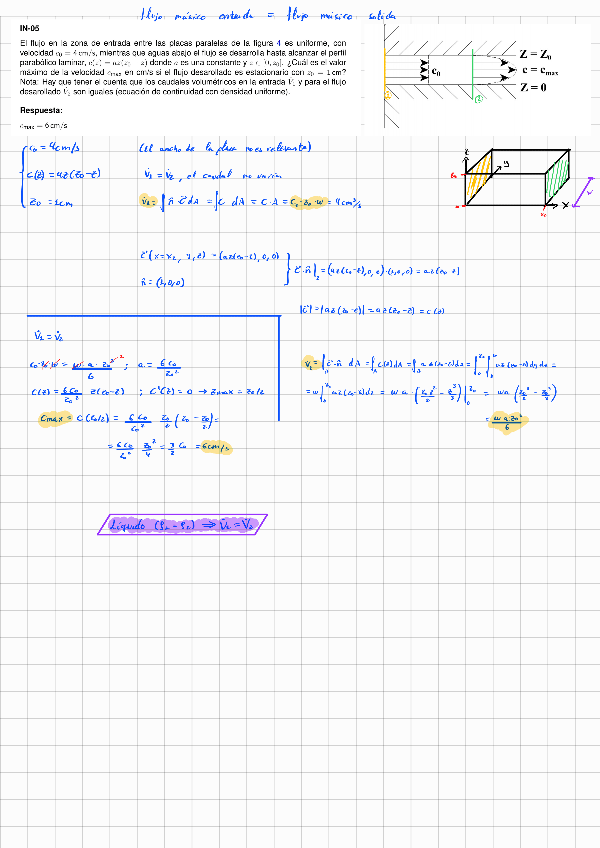 flujo másico entrada = flujo másico salida
IN-05
El flujo en la zona de entrada entre las placas paralelas de la figura 4 es uniforme, con
velocidad c₀ = 4 cm/s, mientras que aguas abajo el flujo se desarrolla hasta alcanzar el perfil
parabólico laminar, c(z) = az(z₀ − z) donde a es una constante y z ∈ [0, z₀]. ¿Cuál es el valor
máximo de la velocidad c_max en cm/s si el flujo desarollado es estacionario con z₀ = 1 cm?
Nota: Hay que tener el cuenta que los caudales volumétricos en la entrada V̇₁ y para el flujo
desarollado V̇₂ son iguales (ecuación de continuidad con densidad uniforme).
Respuesta:
c_max = 6 cm/s
Z = Z₀
c₀ c = c_max
Z = 0
① ②
c₀ = 4cm/s (el ancho de la placa no es relevante)
c(z) = az(z₀-z) V̇₁ = V̇₂, el caudal no varía
z₀ = 1cm V̇₁ = ∫ n·c dA = ∫ c dA = c·A = c₁·z₀·w = 4cm³/s
z y x w
c⃗(x=x₂, y, z) = (az(z₀-z),0,0)
n⃗ = (1,0,0) c⃗·n⃗|₂ = (az(z₀-z),0,0)·(1,0,0) = az(z₀-z)
|c⃗| = |az(z₀-z)| = az(z₀-z) = c(z)
V̇₁ = V̇₂
c₀·z₀·w = w·a·z₀³/6 ; a = 6c₀/z₀²
c(z) = 6c₀/z₀² z(z₀-z) ; c'(z) = 0 → zmax = z₀/2
Cmax = c(z₀/2) = 6c₀/z₀² z₀/2 (z₀ - z₀/2) =
= 6c₀/z₀² z₀²/4 = 3/2 c₀ = 6cm/s
V̇₂ = ∫ c⃗·n⃗ dA = ∫ c(z)dA = ∫ az(z₀-z)dA = ∫₀^z₀ ∫₀^w az(z₀-z)dydz =
= w∫₀^z₀ az(z₀-z)dz = w a (z₀z²/2 - z³/3)|₀^z₀ = wa (z₀³/2 - z₀³/3)
= w a z₀³/6
Líquido (ρ₁ = ρ₂) ⇒ V̇₁ = V̇₂